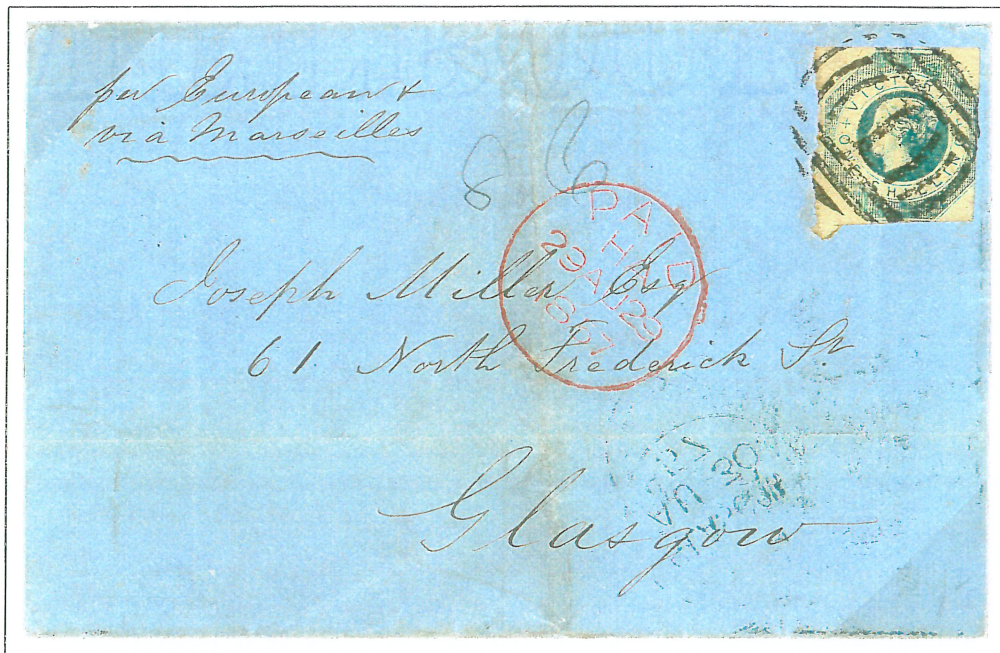 per European &
via Marseilles
8
VICTORIA
ONE SHILLING
PAID
HN
29 AU 29
1857
Joseph Miller Esqr
61 North Frederick St.
Glasgow
AU 30